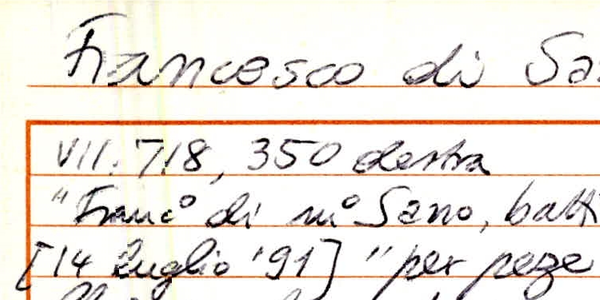 Francesco di Sa
VII. 718, 350 destra
"Franc° di m° Sano, batt
[14 luglio '91] "per peze